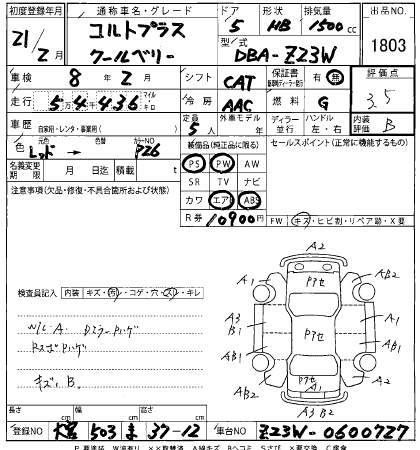 初度登録年月 通称車名・グレード ドア 形状 排気量 出品NO.
21/2月 コルトプラス 5 HB 1500cc 1803
クールベリー 型式 DBA-Z23W
車検 8年2月 シフト CAT 保証書 有・無 評価点
走行 54,436 マイル・キロ 冷房 AAC 燃料 G 3.5
車歴 自家用・レンタ・事業用( ) 定員 5人 外車モデル年 ディーラー 並行 ハンドル 左・右 内装評価 B
色 元色 レッド 色替 カラーNO P26 装備品(純正品に限る) セールスポイント(正常に機能するもの)
名義変更期限 月日 積載 t PS PW AW
注意事項(欠品・修復・不具合箇所および状態) SR TV ナビ
カワ エアB ABS
R券 10900円 FW キズ・ヒビ割・リペア跡・X要
A2
A1 Pアセ AB2
検査員記入 内装 キズ・汚・コゲ・穴・スレ・キレ
A3 B1 Pアセ A3
AB1 AB1
キズ、B.
A1 Pアセ AB2
A1
A3 B2
長さ cm 幅 cm 高さ cm
登録NO 503 ま 37-12 車台NO Z23W-0600727